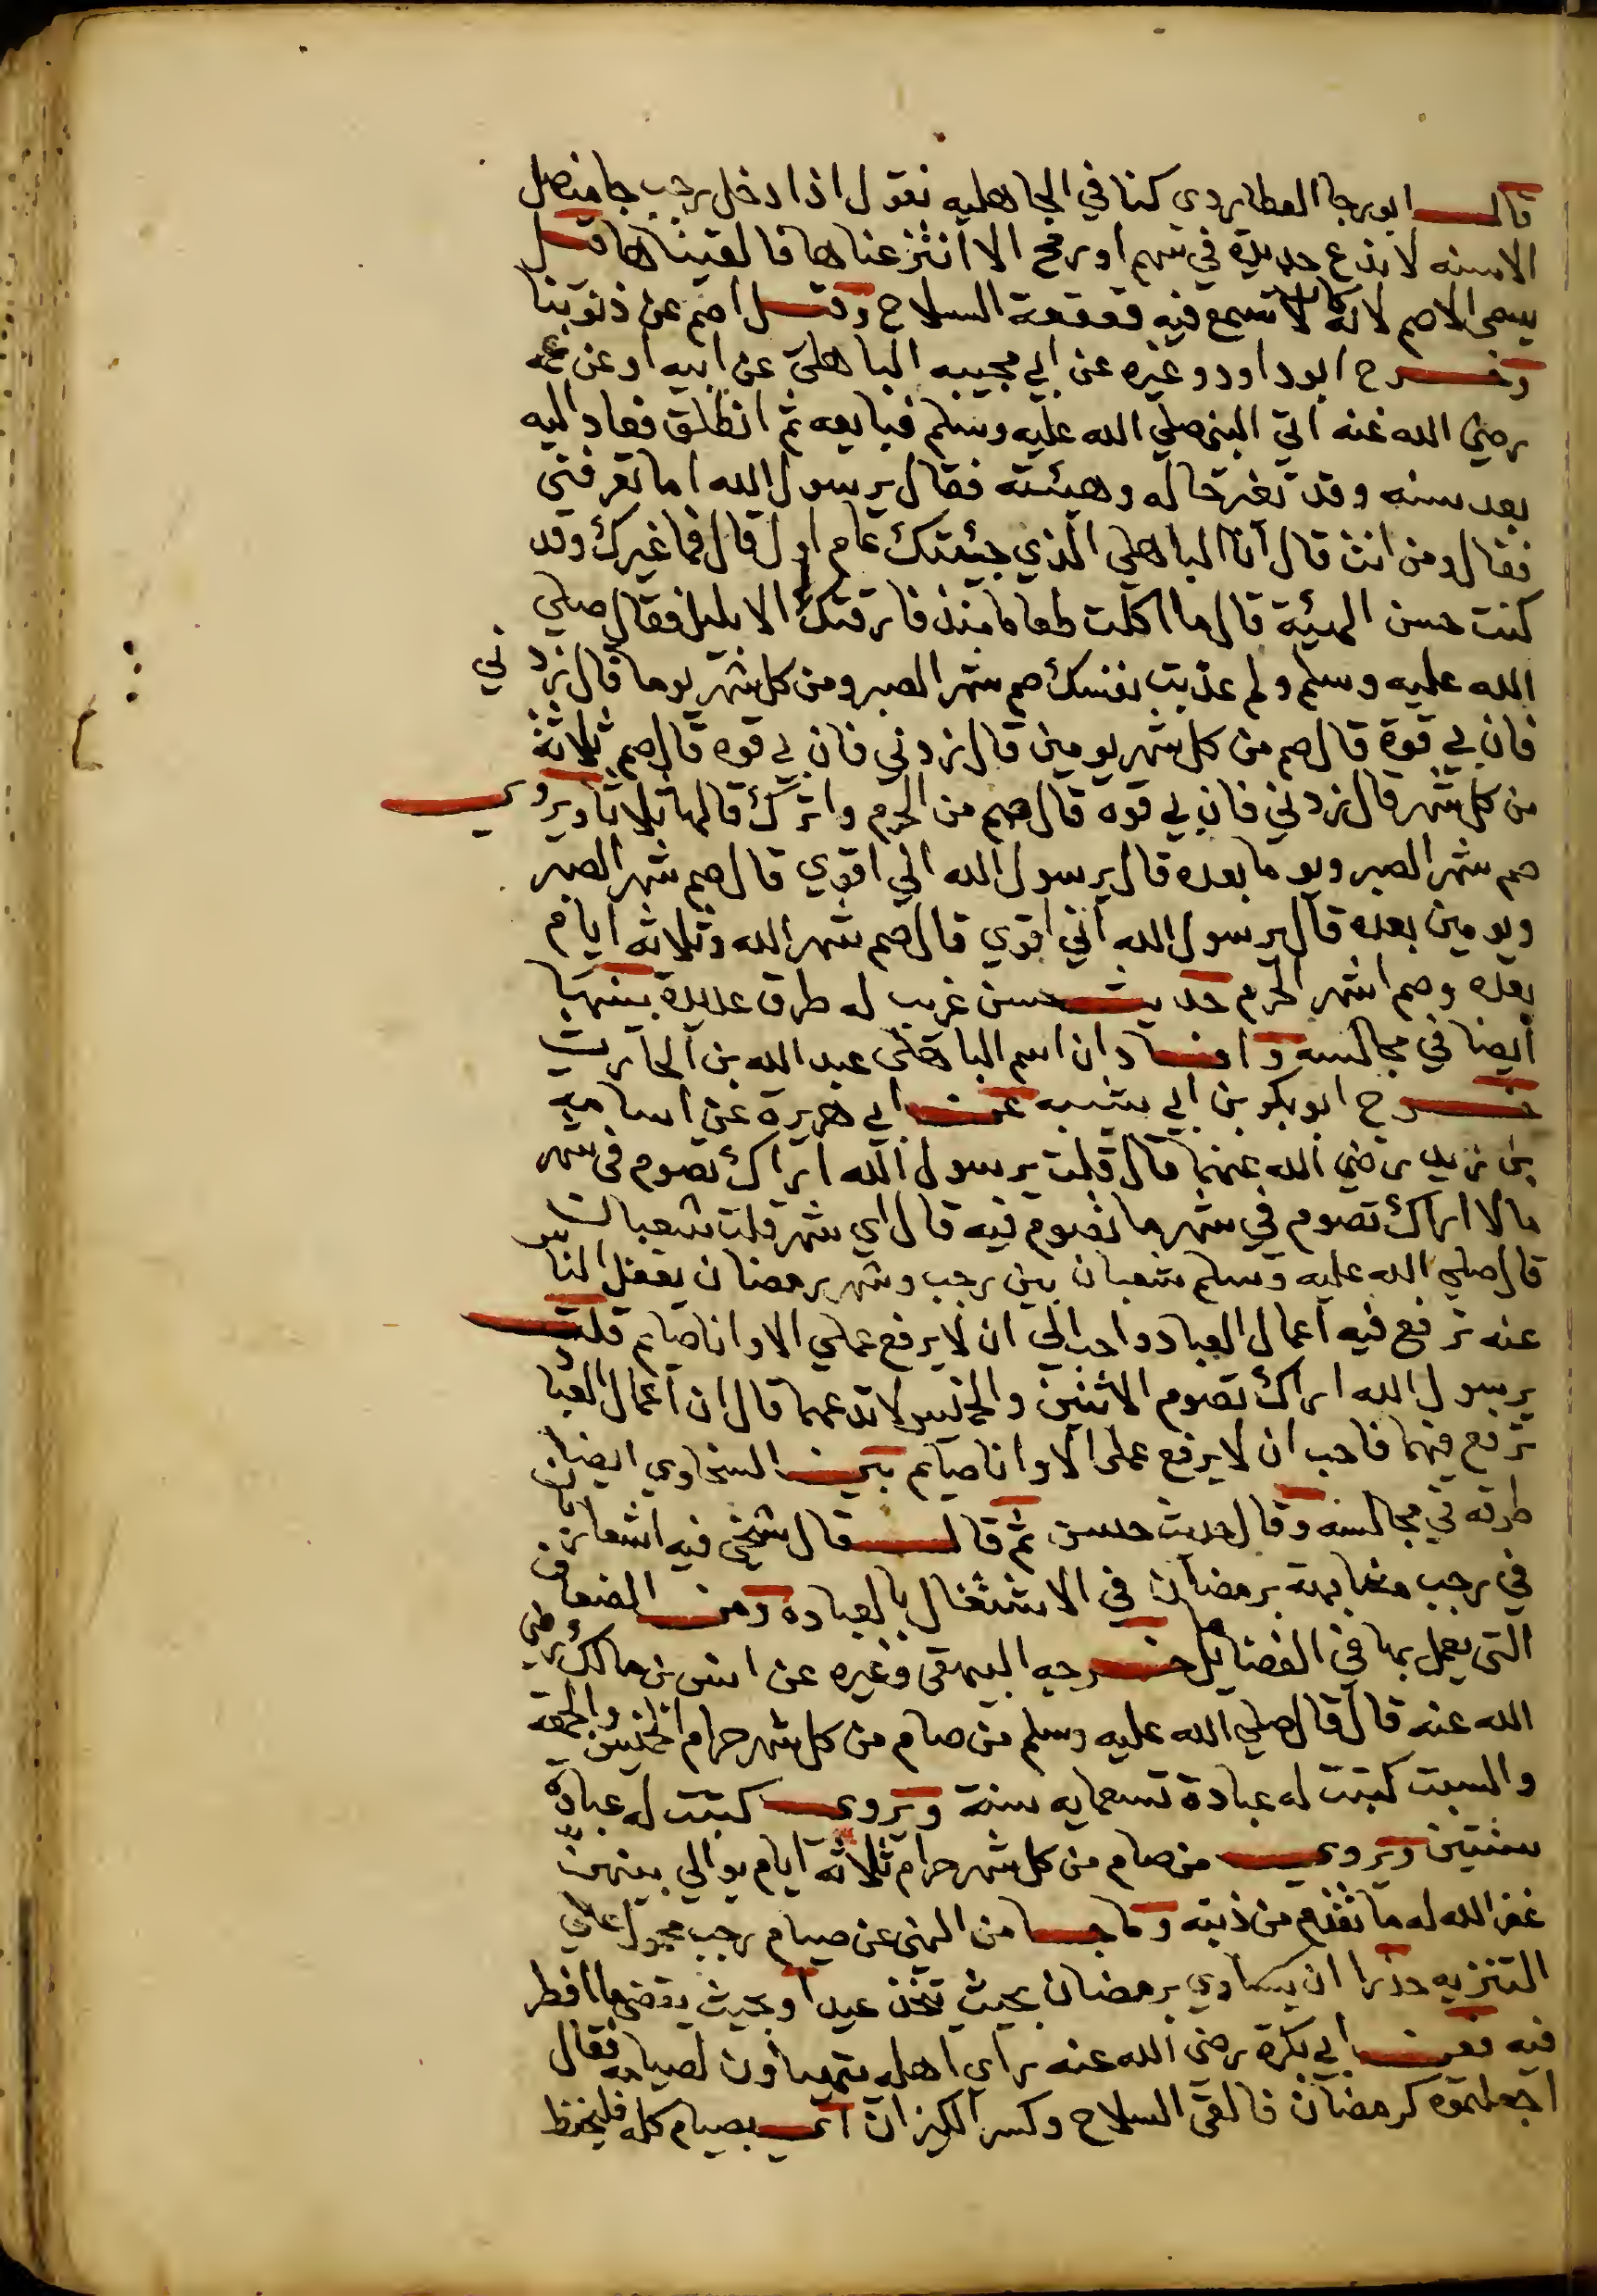 قال ابو رجا العطاردي كنا في الجاهليه نقول اذا دخل رجب جا منصل
الاسنه لا ندع حديدة في سهم او رمح الا انتزعناها فالقيناها قيل
يسمى الاصم لانه كان لا تسمع فيه قعقعة السلاح وقيل اصم عن ذنوبنا
وخرج ابو داود وغيره عن ابي مجيبه الباهلي عن ابيه او عن عمه
رضي الله عنه اتي النبي صلي الله عليه وسلم فبايعه ثم انطلق فعاد اليه
بعد سنه وقد تغير حاله وهيئته فقال يرسول الله اما تعرفني
فقال ومن انت قال انا الباهلي الذي جيئتك عام اول قال فما غيرك وقد
كنت حسن الهيئة قال ما اكلت طعاما منذ فارقتك الا بليل فقال صلي
الله عليه وسلم ولم عذبت نفسك صم شهر الصبر ومن كل شهر يوما قال زدني
فان بي قوة قال صم من كل شهر يومين قال زدني فان بي قوه قال صم ثلاثة
من كل شهر قال زدني فان بي قوه قال صم من الحرم واترك قالها ثلاثا ويروي
صم شهر الصبر ويوما بعده قال يرسول الله اني اقوي قال صم شهر الصبر
ويومين بعده قال يرسول الله اني اقوي قال صم شهر الله وثلاثه ايام
بعده وصم اشهر الحرم حديث حسن غريب له طرق عديدة بينها
ايضا في مجالسه وافاد ان اسم الباهلي عبد الله بن الحارث
خرج ابو بكر بن ابي شيبه عن ابي هريرة عن اسامه
بن زيد رضي الله عنهما قال قلت يرسول الله اراك تصوم في شهر
ما لا اراك تصوم في شهر ما تصوم فيه قال اي شهر قلت شعبان
قال صلي الله عليه وسلم شعبان بين رجب وشهر رمضان يغفل الناس
عنه ترفع فيه اعمال العباد واحب الي ان لا يرفع عملي الا وانا صايم قلت
يرسول الله اراك تصوم الاثنين والخميس لا تدعهما قال ان اعمال العباد
ترفع فيهما فاحب ان لا يرفع عملي الا وانا صايم بين السخاوي ايضا
طرقه في مجالسه وقال حديث حسن ثم قال قال شيخي فيه اشعار بان
في رجب مشابهة برمضان في الاشتغال بالعباده ومن الضعاف
التي يعمل بها في الفضايل ما خرجه البيهقي وغيره عن انس بن مالك رضي
الله عنه قال قال صلي الله عليه وسلم من صام من كل شهر حرام الخميس والجمعة
والسبت كتبت له عبادة تسعمايه سنة ويروي كتبت له عبادة
سنتين ويروي من صام من كل شهر حرام ثلاثة ايام يوالي بينهن
غفر الله له ما تقدم من ذنبه وما جا من النهي عن صيام رجب محمول علي
التنزيه حذرا ان يساوي برمضان بحيث تتخذ عيدا وبحيث يقضي ما افطر
فيه فعن ابي بكرة رضي الله عنه راي اهله يتهياون لصيامه فقال
اجعلتموه كرمضان فالقي السلاح وكسر الكيزان اي بصيام كله فليحفظ